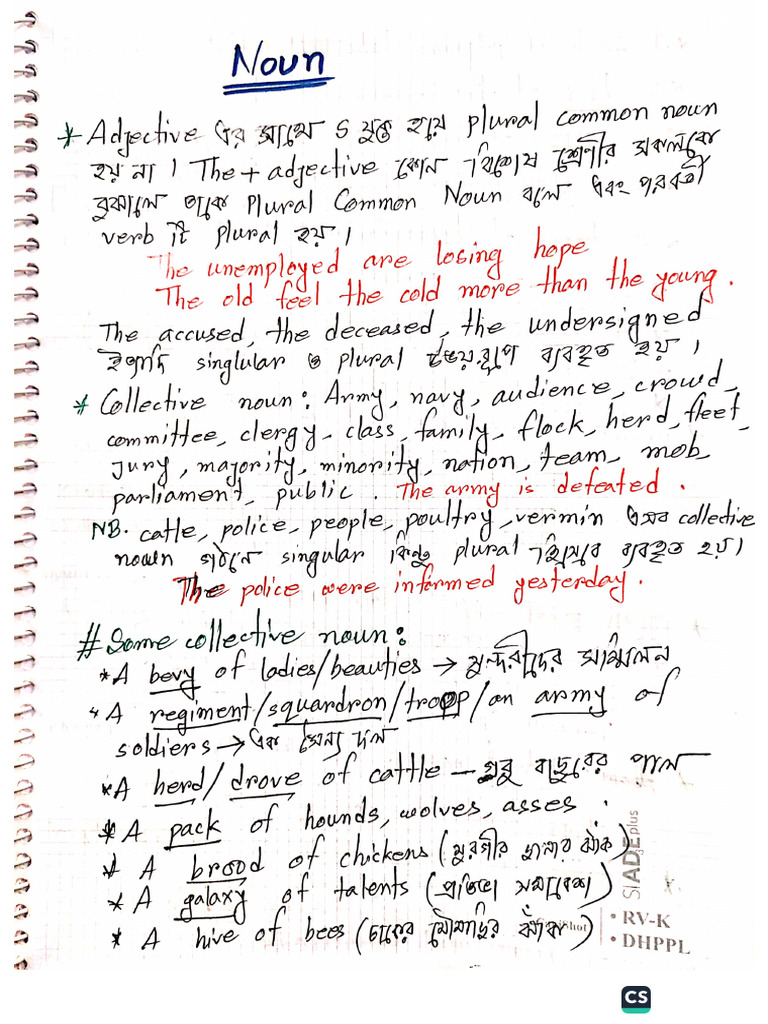 Noun
* Adjective এর সাথে S যুক্ত হয়ে plural common noun
হয় না। The + adjective কোন বিশেষ শ্রেণীর সকলকে
বুঝালে তাকে Plural Common Noun বলে এবং পরবর্তী
verb টি plural হয়।
The unemployed are losing hope
The old feel the cold more than the young.
The accused, the deceased, the undersigned
ইত্যাদি singlular ও plural উভয়রূপে ব্যবহৃত হয়।
* Collective noun: Army, navy, audience, crowd,
committee, clergy, class, family, flock, herd, fleet,
Jury, majority, minority, nation, team, mob,
parliament, public. The army is defeated.
NB. catle, police, people, poultry, vermin এসব collective
noun গঠনে singular কিন্তু plural হিসেবে ব্যবহৃত হয়।
The police were informed yesterday.
# Some collective noun:
* A bevy of ladies/beauties → সুন্দরীদের সম্মিলন
* A regiment/squardron/troop/an army of
soldiers → এক সৈন্য দল
* A herd/drove of cattle - গরু বাছুরের পাল
* A pack of hounds, wolves, asses.
* A brood of chickens (মুরগীর ছানার ঝাঁক)
* A galaxy of talents (প্রতিভা সমাবেশ)
* A hive of bees (চাকের মৌমাছির ঝাঁক)
SIADE plus
• RV-K
• DHPPL
CS